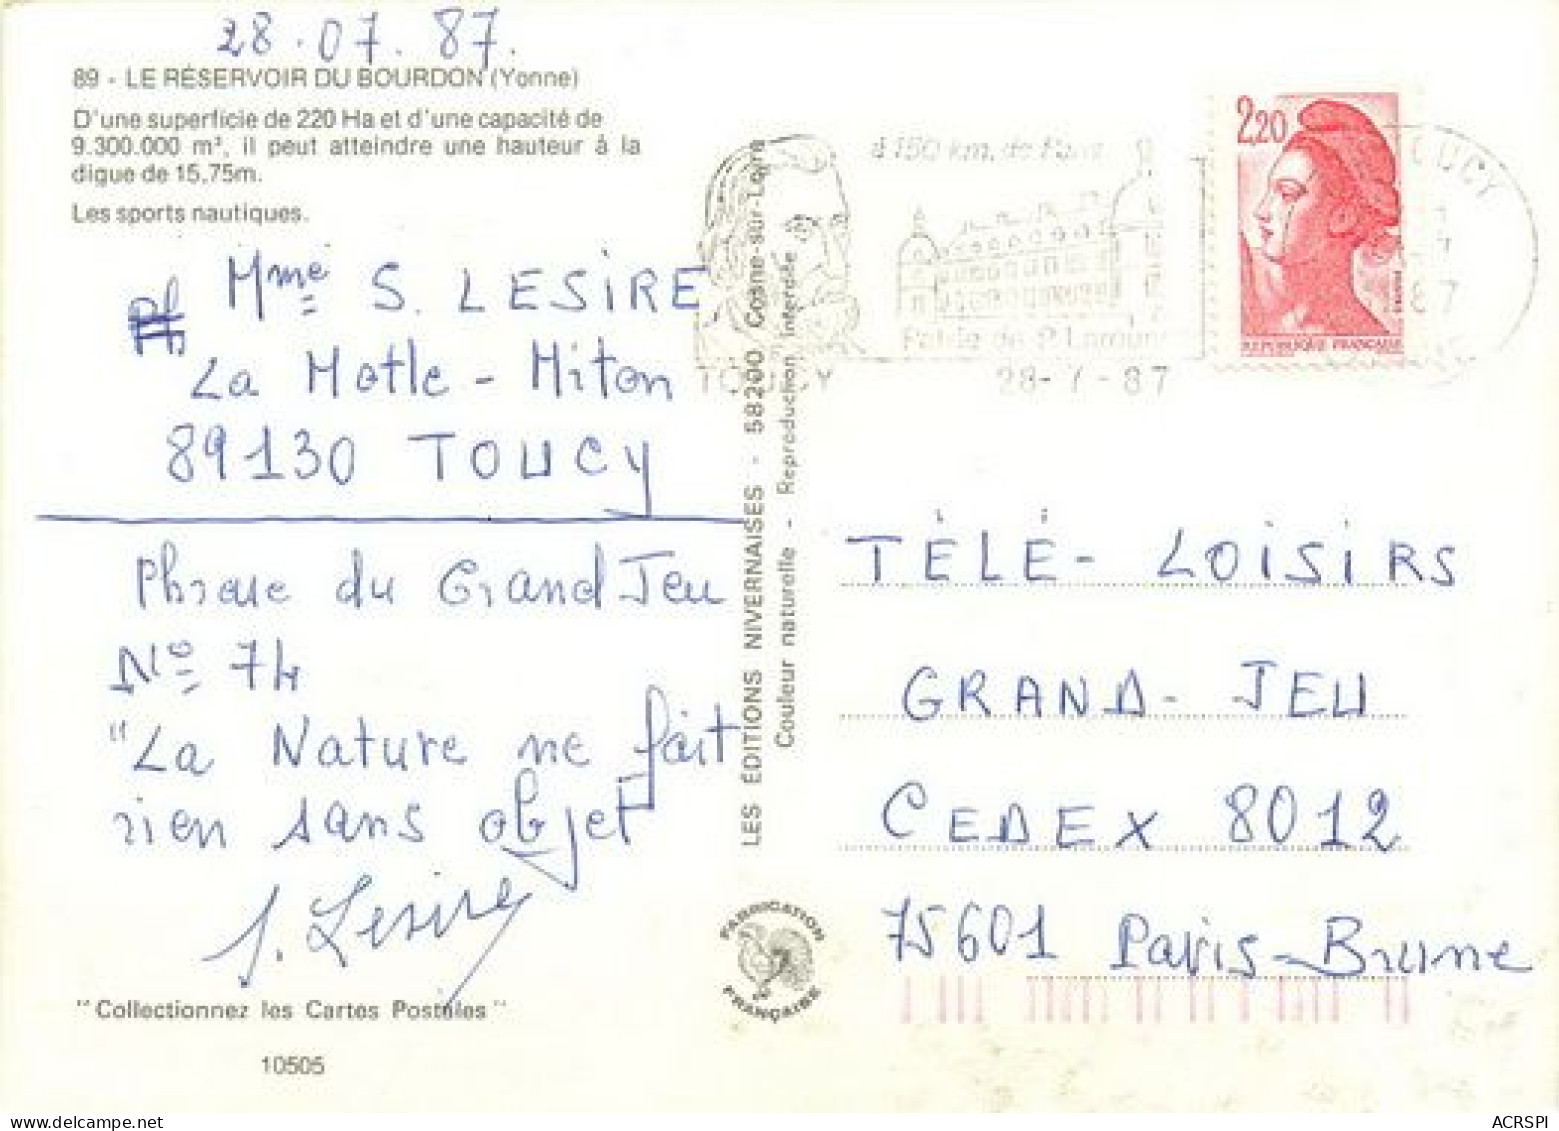 28.07.87.
89 - LE RÉSERVOIR DU BOURDON (Yonne)
D'une superficie de 220 Ha et d'une capacité de
9.300.000 m³, il peut atteindre une hauteur à la
digue de 15,75m.
Les sports nautiques.
Mme S. LESIRE
La Motte - Miton
89130 TOUCY
Phrase du Grand Jeu
No 74
"La Nature ne fait
rien sans objet"
S. Lesire
"Collectionnez les Cartes Postales"
10505
LES ÉDITIONS NIVERNAISES - 58200 Cosne-sur-Loire
Couleur naturelle - Reproduction interdite
FABRICATION
FRANÇAISE
à 150 km. de Paris
Patrie de P. Larousse
TOUCY
28-7-87
2,20
REPUBLIQUE FRANÇAISE
TÉLÉ-LOISIRS
GRAND-JEU
CEDEX 8012
75601 Paris-Brune
ACRSPI